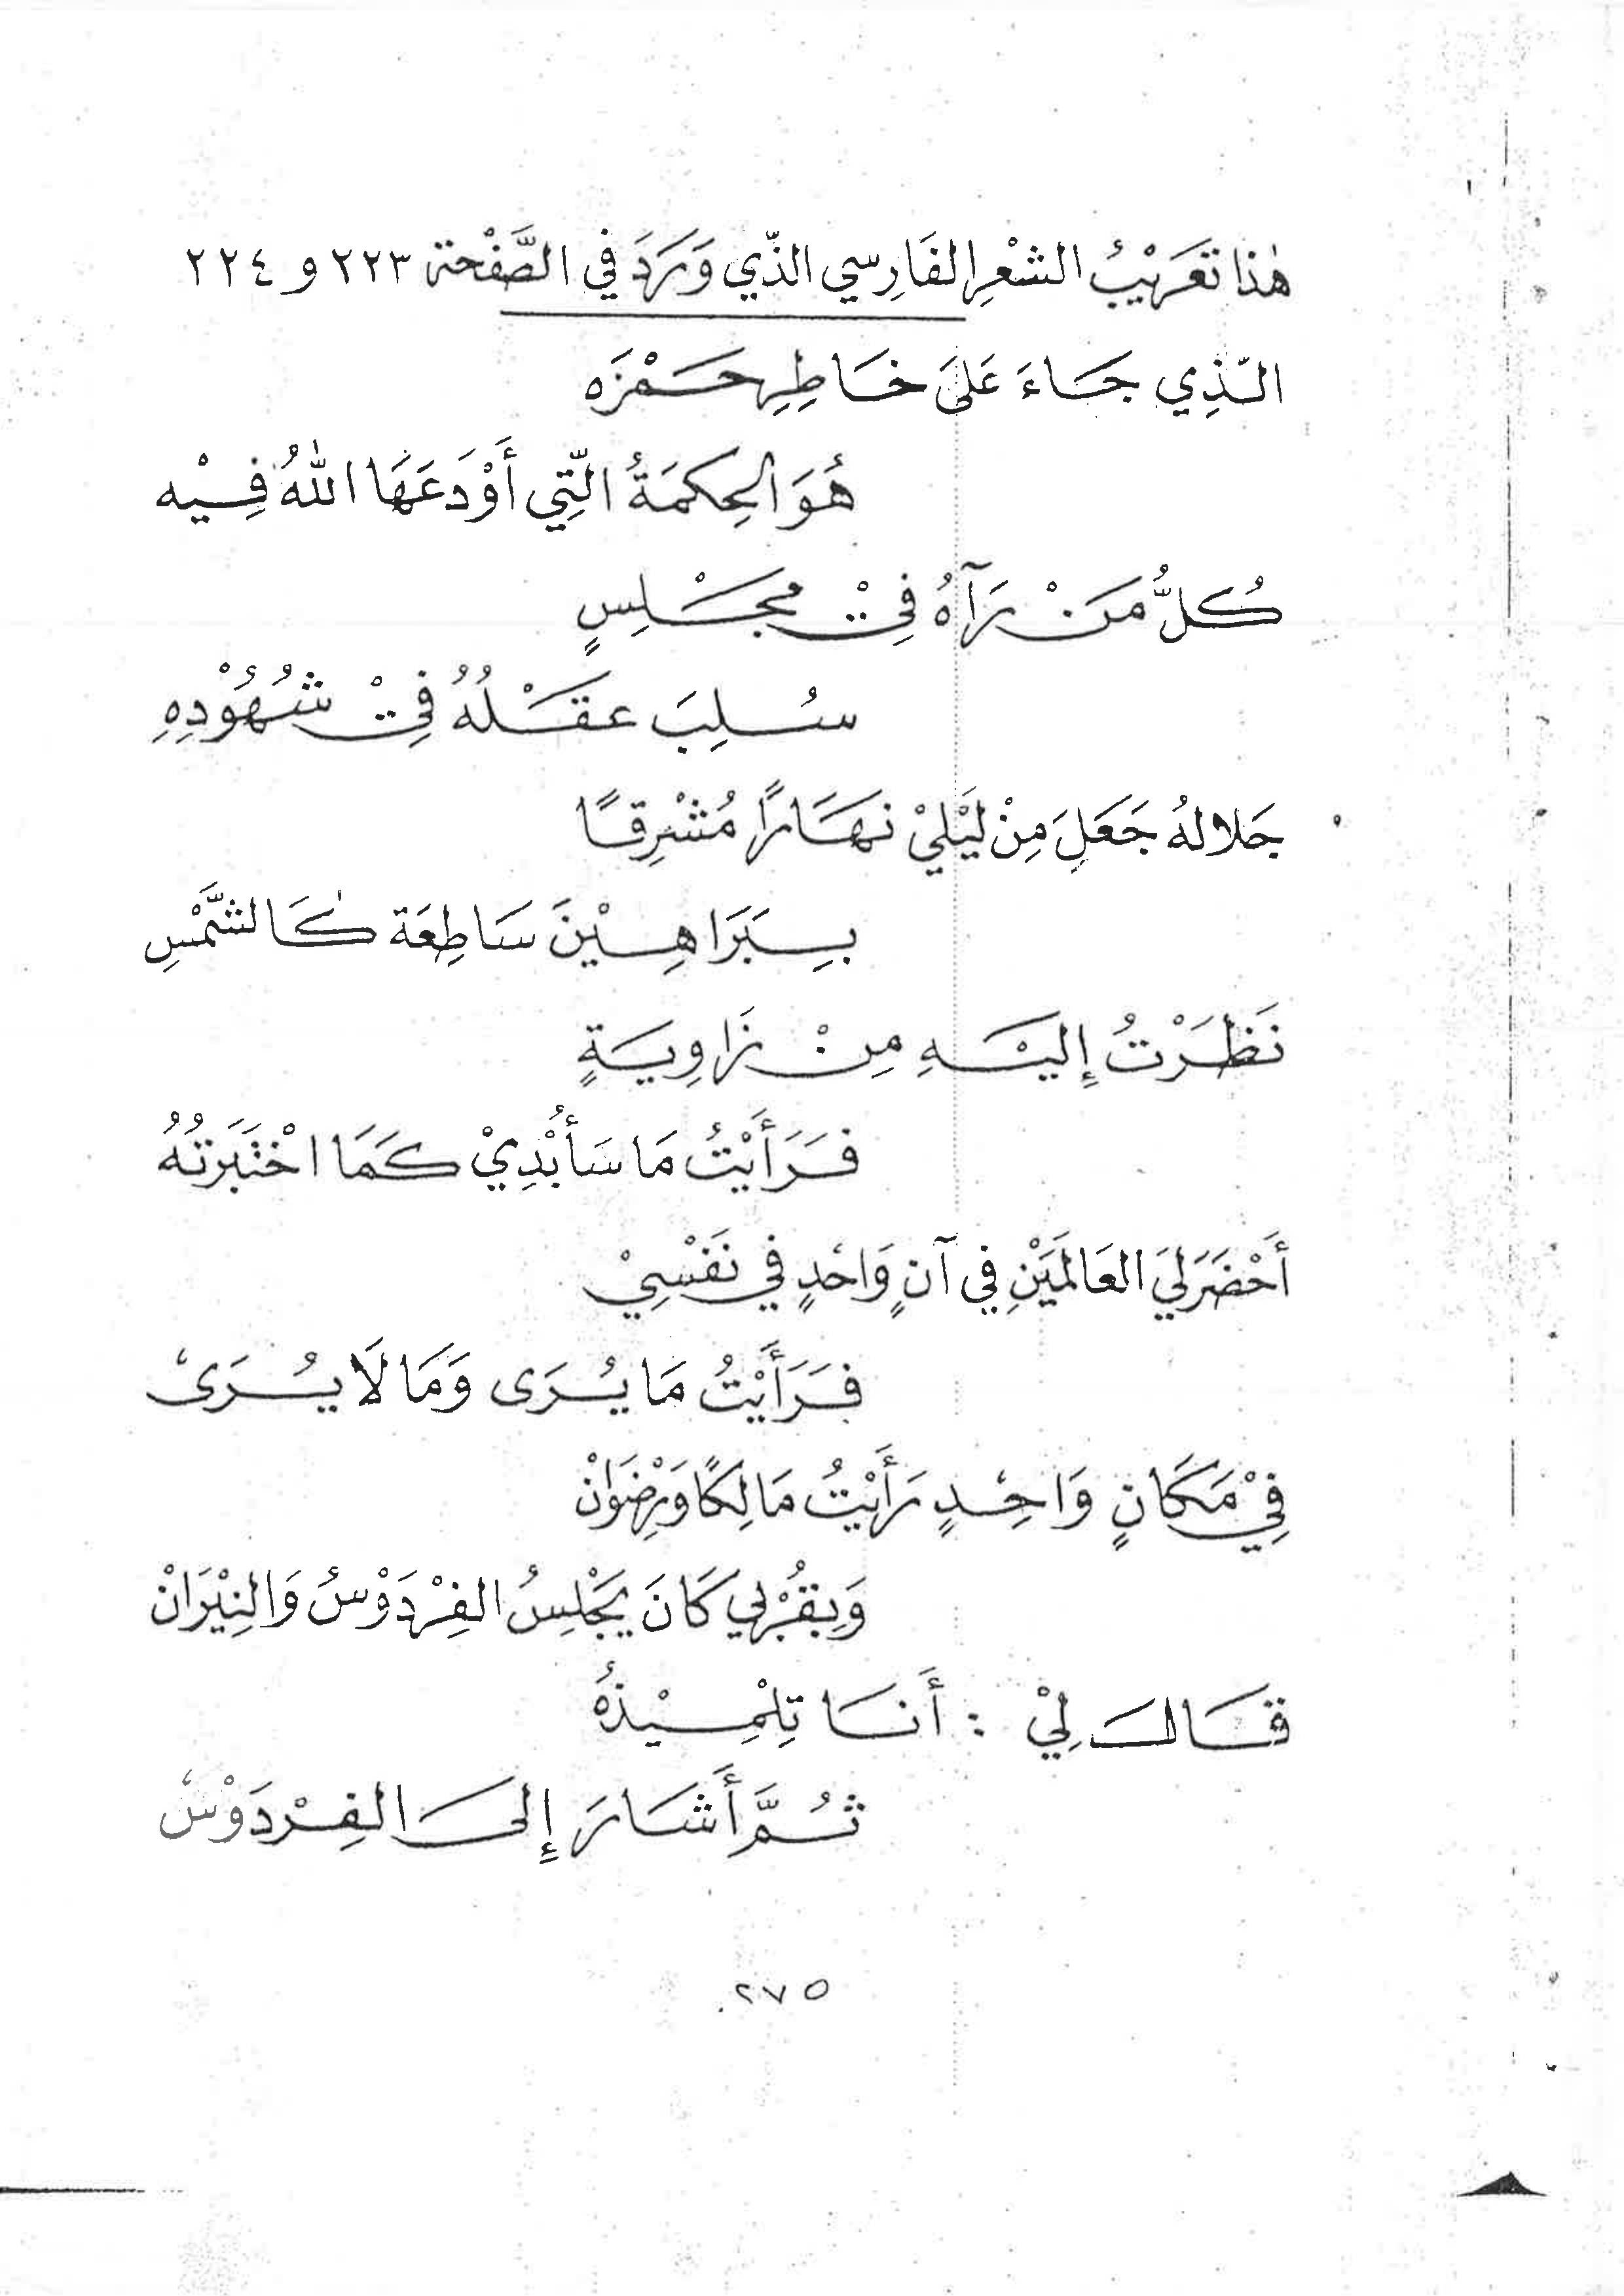 هٰذا تَعَرِيْبُ الشعْرِ الفَارِسي الذّي وَرَدَ في الصَّفْحة ٢٢٣ و ٢٢٤
الـذِي جَـاءَ عَلىَ خَـاطِرِ حَـمْزَه
هُوَ الحِكمَةُ الـتِّي أَوْدَعَهَا اللهُ فِـيْه
كُـلُّ مَنْ رَآهُ فِيْ مجَـْلِسٍ
سُـلِبَ عـقَـْلُهُ فِيْ شُهُوْدِهِ
جَلالهُ جَعَلَ مِنْ لَيْلِيْ نهَـارًا مُشْرِقًـا
بِـبَرَاهِـيْنَ سَاطِعَة كَـالشَّمْسِ
نَظَرْتُ إِليَـْهِ مِنْ زَاوِيَـةٍ
فَـرَأَيْتُ مَا سَأُبْدِيْ كَمَا اخْتَبَرتُهُ
أَحْضَرَ لِيَ العَالَمَيْنِ في آنٍ وَاحدٍ في نَفْسِيْ
فَـرَأَيْتُ مَا يُـرَى وَمَا لَا يُـرَى
فِيْ مَكَانٍ وَاحِـدٍ رَأَيْتُ مَالِكًا وَرِضْوَانْ
وَبِقُرْبي كَانَ يَجْلِسُ الفِرْدَوْسُ وَالنِيْرَانْ
قَـالَ لِيْ : أَنَـا تِلْمِـيْذهُ
ثُـمَّ أَشَـارَ إِلىَ الفِـرْدَوْس
٢٧٥